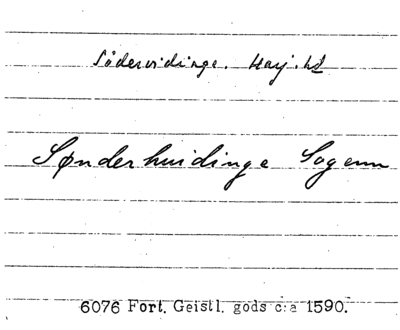 Södervidinge. Harj. hd
Sønderhuidinge Sogenn
6076 Fort. Geistl. gods c:a 1590.